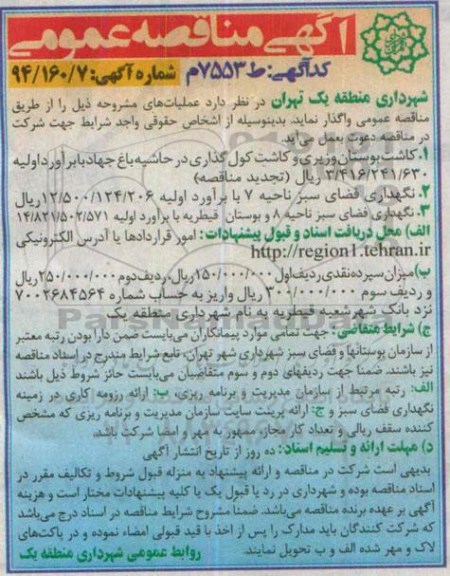 آگهی مناقصه عمومی
کدآگهی: ط۷۵۵۳م شماره آگهی: ۹۴/۱۶۰/۷
شهرداری منطقه یک تهران در نظر دارد عملیات‌های مشروحه ذیل را از طریق
مناقصه عمومی واگذار نماید. بدینوسیله از اشخاص حقوقی واجد شرایط جهت شرکت
در مناقصه دعوت بعمل می‌آید.
۱. کاشت بوستان وزیری و کاشت کول گذاری در حاشیه باغ جهاد با برآورد اولیه
۳/۴۱۶/۲۴۱/۶۳۰ ریال (تجدید مناقصه)
۲. نگهداری فضای سبز ناحیه ۷ با برآورد اولیه ۱۲/۵۰۰/۱۲۴/۲۰۶ ریال
۳. نگهداری فضای سبز ناحیه ۸ و بوستان قیطریه با برآورد اولیه ۱۴/۸۲۱/۵۰۲/۵۷۱
الف) محل دریافت اسناد و قبول پیشنهادات: امور قراردادها یا آدرس الکترونیکی
http://region1.tehran.ir
ب) میزان سپرده نقدی ردیف اول ۱۵۰/۰۰۰/۰۰۰ ریال، ردیف دوم ۲۵۰/۰۰۰/۰۰۰ ریال
و ردیف سوم ۳۰۰/۰۰۰/۰۰۰ ریال واریز به حساب شماره ۷۰۰۲۶۸۴۵۶۴
نزد بانک شهر شعبه قیطریه به نام شهرداری منطقه یک
ج) شرایط متقاضی: جهت تمامی موارد پیمانکاران می‌بایست ضمن دارا بودن رتبه معتبر
از سازمان بوستانها و فضای سبز شهرداری شهر تهران، تابع شرایط مندرج در اسناد مناقصه
نیز باشند. ضمنا جهت ردیفهای دوم و سوم متقاضیان می‌بایست حائز شروط ذیل باشند
الف: رتبه مرتبط از سازمان مدیریت و برنامه ریزی، ب: ارائه رزومه کاری در زمینه
نگهداری فضای سبز و ج: ارائه پرینت سایت سازمان مدیریت و برنامه ریزی که مشخص
کننده سقف ریالی و تعداد کار مجاز، ممهور به مهر و امضا شرکت باشد.
د) مهلت ارائه و تسلیم اسناد: ده روز از تاریخ انتشار آگهی
بدیهی است شرکت در مناقصه و ارائه پیشنهاد به منزله قبول شروط و تکالیف مقرر در
اسناد مناقصه بوده و شهرداری در رد یا قبول یک یا کلیه پیشنهادات مختار است و هزینه
آگهی بر عهده برنده مناقصه می‌باشد. ضمنا مشروح شرایط مناقصه در اسناد درج می‌باشد
که شرکت کنندگان باید مدارک را پس از اخذ با قید قبولی امضاء نموده و در پاکت‌های
لاک و مهر شده الف و ب تحویل نمایند. روابط عمومی شهرداری منطقه یک